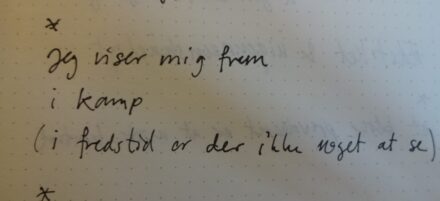 *
Jeg viser mig frem
i kamp
(i fredstid er der ikke noget at se)
*